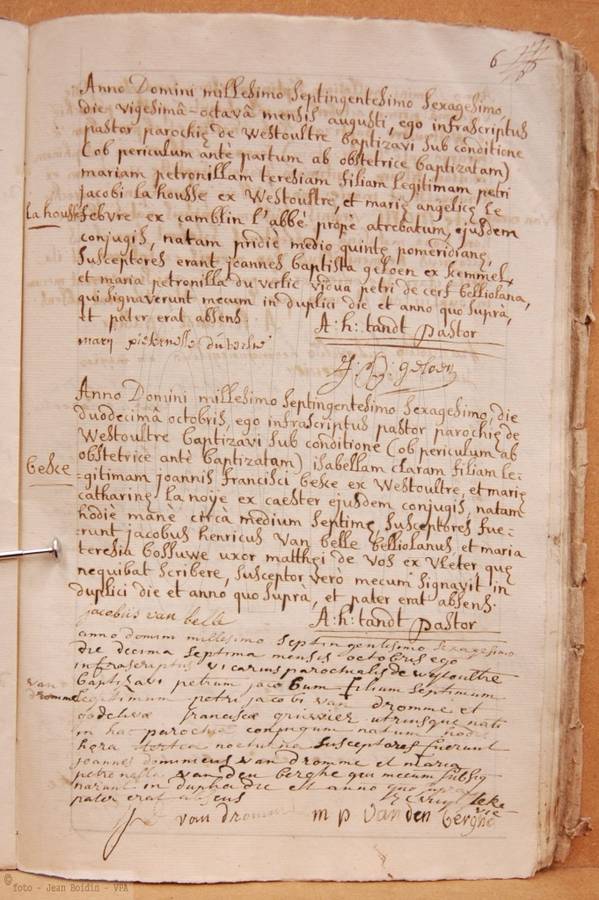 6
Anno Domini millesimo Septingentesimo Sexagesimo,
die vigesimâ-octavâ mensis augusti, ego infrascriptus
pastor parochię de Westoultre baptizavi sub conditione
(ob periculum antè partum ab obstetrice baptizatam)
mariam petronillam teresiam filiam legitimam petri
jacobi la housse ex Westoultre, et marię angelicę le
la housse
febvre ex camblin l'abbè propè atrebatum, ejusdem
conjugis, natam pridiè medio quintę pomeridianę,
Susceptores erant joannes baptista geloen ex kemmel,
et maria petronilla du verlie vidua petri de cerf belliolana,
qui signaverunt mecum in duplici die et anno quo suprà,
et pater erat absens
A: h: tandt pastor
marij pieternelle
J: B: geloen
Anno Domini millesimo Septingentesimo Sexagesimo, die
duodecimâ octobris, ego infrascriptus pastor parochię de
Westoultre baptizavi sub conditione (ob periculum ab
obstetrice antè baptizatam) isabellam claram filiam le=
beske
=gitimam joannis francisci beske ex Westoultre, et marię
catharinę la noije ex caester ejusdem conjugis, natam
hodiè manè circà medium Septimę, Susceptores fue=
=runt jacobus henricus van belle belliolanus, et maria
teresia bossuwe uxor matthei de vos ex vleter quę
nequibat scribere, susceptor vero mecum signavit in
duplici die et anno quo suprà, et pater erat absens.
jacobus van belle
A: h: tandt pastor
anno domini millesimo septingentesimo sexagesimo
die decima septima mensis octobris ego
infrascriptus vicarius parochialis de westoultre
baptizavi petrum jacobum filium septimum
van dromme
legitimum petri jacobi van dromme et
godelivæ franciscæ gruwier utriusque nati
in hac parochia conjugum natum hodie
hora nocturna susceptores fuerunt
joannes dominicus van dromme et maria
petronella van den berghe qui mecum subsig
narunt in duplici die et anno quo supra
pater erat
van dromme m p van den berghe
© foto - Jean Boidin - VPA